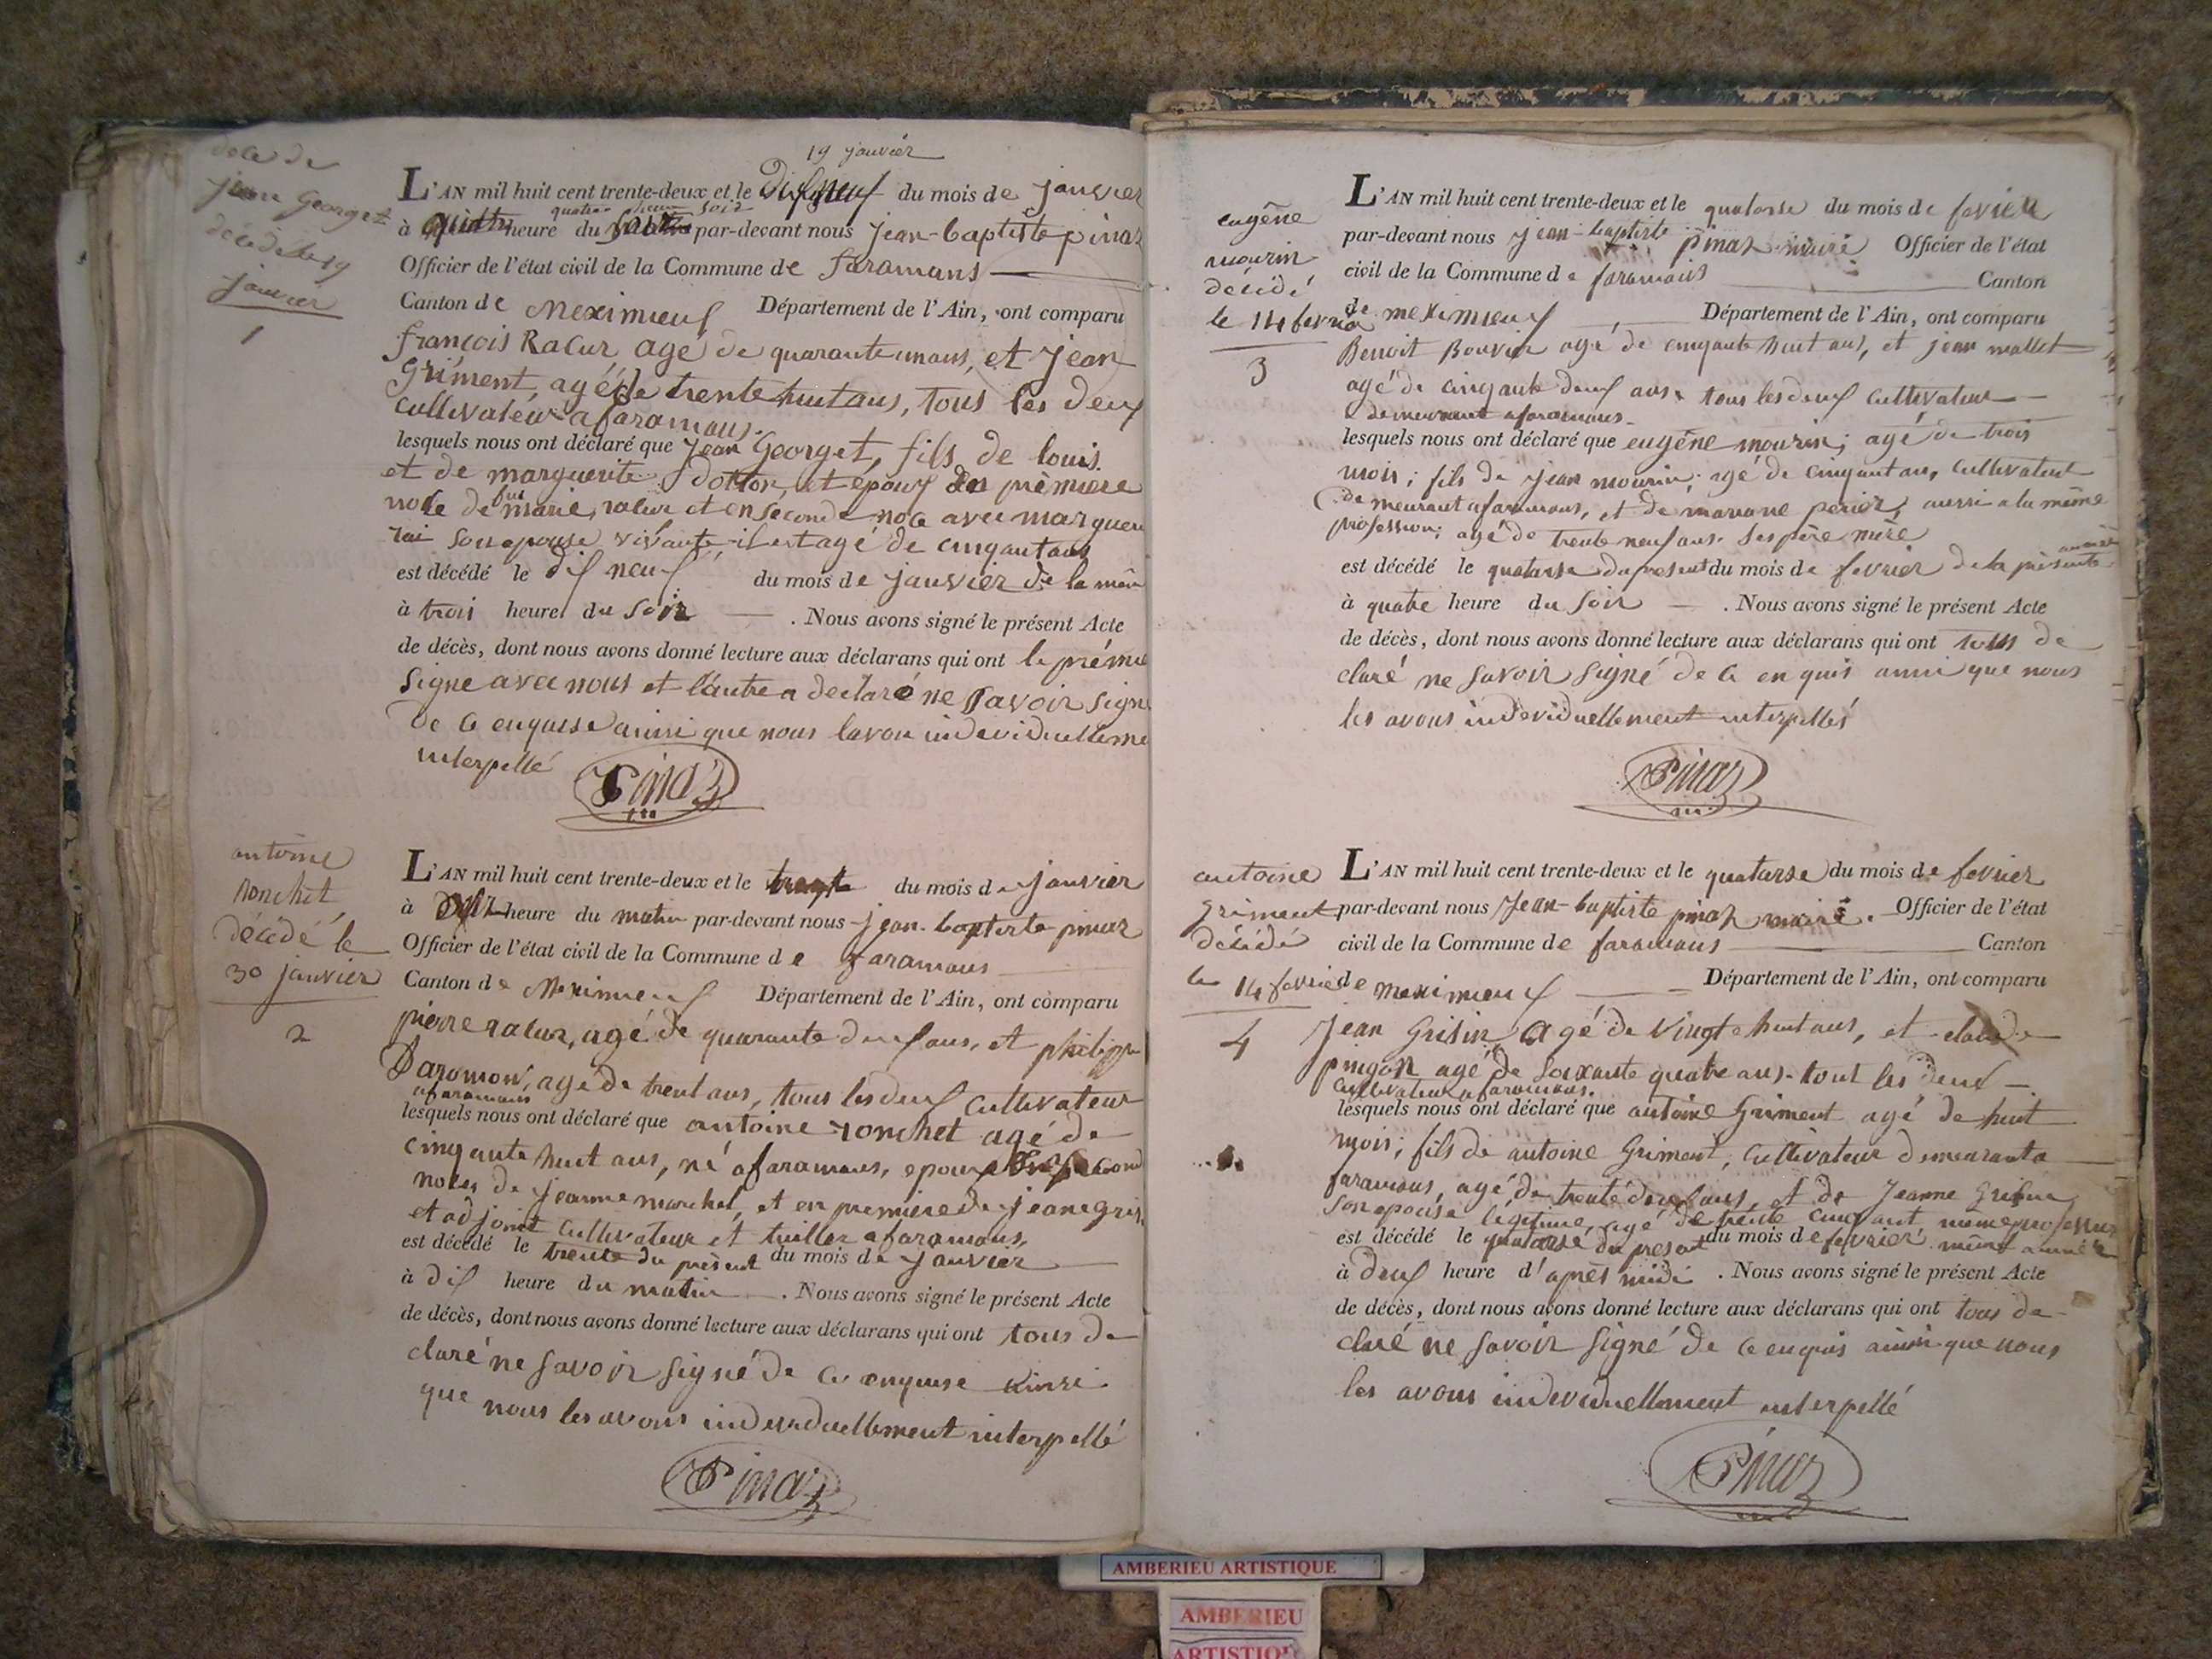 19 janvier
jean georget
décédé le 19
janvier
1
L'AN mil huit cent trente-deux et le dif neuf du mois de janvier
quatre heure soir
à heure du par-devant nous jean-baptiste pinaz
Officier de l'état civil de la Commune de faramans
Canton de Meximieuf Département de l'Ain, ont comparu
françois Racur agé de quarante un ans, et jean
Griment, agé de trente huit ans, tous les deuf
cultivateur a faramans.
lesquels nous ont déclaré que jean Georget, fils de louis
et de marguerite dotton, et epouf en prémiere
noce de marie racur et en seconde noce avec marguerite
son epouse vivante il est agé de cinquant ans
est décédé le dif neuf du mois de janvier de la mêm
à trois heure du soir . Nous avons signé le présent Acte
de décès, dont nous avons donné lecture aux déclarans qui ont le prémie
signe avec nous et l'autre a declaré ne savoir signe
de ce enquise ainsi que nous lavon individuelleme
interpellé
Pinaz
antoine
ronchet
décédé le
30 janvier
2
L'AN mil huit cent trente-deux et le trente du mois de janvier
à heure du matin par-devant nous jean-baptiste pinaz
Officier de l'état civil de la Commune de faramans
Canton de Meximieuf Département de l'Ain, ont comparu
pierre racur, agé de quarante deuf ans, et philippe
Daromon, agé de trent ans, tous les deuf cultivateur
a faramans
lesquels nous ont déclaré que antoine ronchet agé de
cinquante huit ans, né a faramans, epouf second
noces de jeanne marchet, et en premiere de jeane gris
et adjoint cultivateur et tuiller a faramans,
est décédé le trente du présent du mois de janvier
à dif heure du matin . Nous avons signé le présent Acte
de décès, dont nous avons donné lecture aux déclarans qui ont tous de
claré ne savoir signé de ce enquise ainsi
que nous les avons individuellement interpellé
Pinaz
eugêne
mourin
décédé
le 14 fevrier
3
L'AN mil huit cent trente-deux et le quatorse du mois de fevrier
par-devant nous jean-baptiste pinaz mairé Officier de l'état
civil de la Commune de faramans Canton
de meximieuf Département de l'Ain, ont comparu
Benoit Bouvier agé de cinquante huit ans, et jean mallet
agé de cinquante deuf ans, tous les deuf cultivateur
demeurant a faramans
lesquels nous ont déclaré que eugêne mourin; agé de trois
mois; fils de jean mourin; agé de cinquant ans, cultivateur
demeurant a faramans, et de mariane perier, aussi a la même
profession; agé de trente neuf ans. ses père mère
est décédé le quatorse du present du mois de fevrier de la présente année
à quatre heure du soir . Nous avons signé le présent Acte
de décès, dont nous avons donné lecture aux déclarans qui ont tous de
claré ne savoir signé de ce enquis ainsi que nous
les avons individuellement interpellés
Pinaz
antoine
griment
décédé
le 14 fevrier
4
L'AN mil huit cent trente-deux et le quatorse du mois de fevrier
par-devant nous jean-baptiste pinaz mairé. Officier de l'état
civil de la Commune de faramans Canton
de meximieuf Département de l'Ain, ont comparu
jean Grisin agé de vingt huit ans, et claude
pingon agé de soixante quatre ans. tout les deuf
cultivateur a faramans.
lesquels nous ont déclaré que antoine Griment agé de huit
mois; fils de antoine Griment, cultivateur demeurant a
faramans, agé de trente deuf ans, et de jeanne
son epouse légitime, agé de trente cinq ant, meme profession
est décédé le quatorsé du presant du mois de fevrier même année
à deuf heure d'aprés midi . Nous avons signé le présent Acte
de décès, dont nous avons donné lecture aux déclarans qui ont tous de
claré ne savoir signé de ce enquis ainsi que nous
les avons individuellement interpellé
Pinaz
AMBERIEU ARTISTIQUE
AMBERIEU
ARTISTIQU